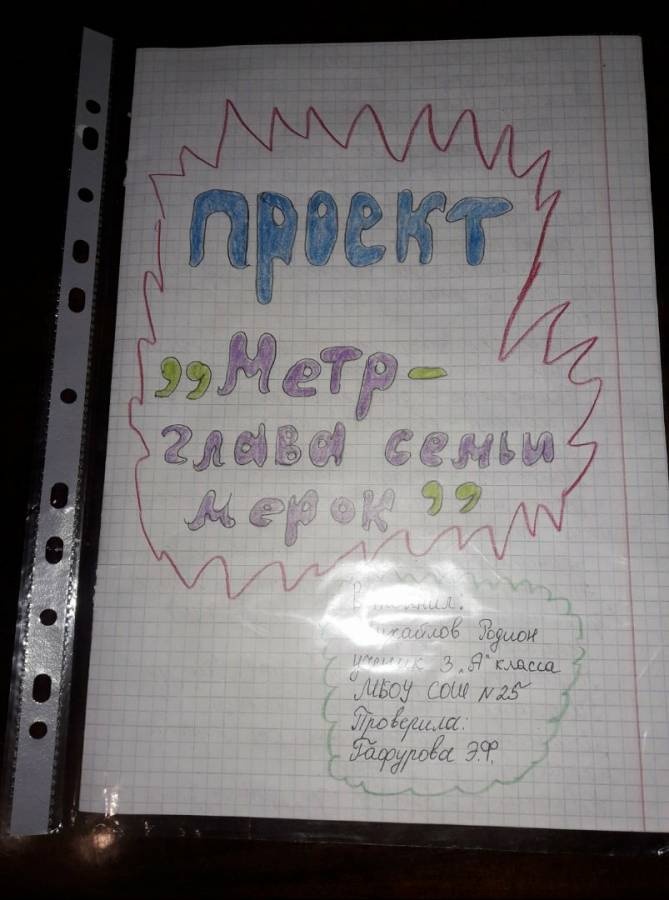 проект
„Метр-
глава семьи
мерок”
Выполнил:
Михайлов Родион
ученик 3 „А" класса
МБОУ СОШ №25
Проверила:
Гафурова Э.Ф.